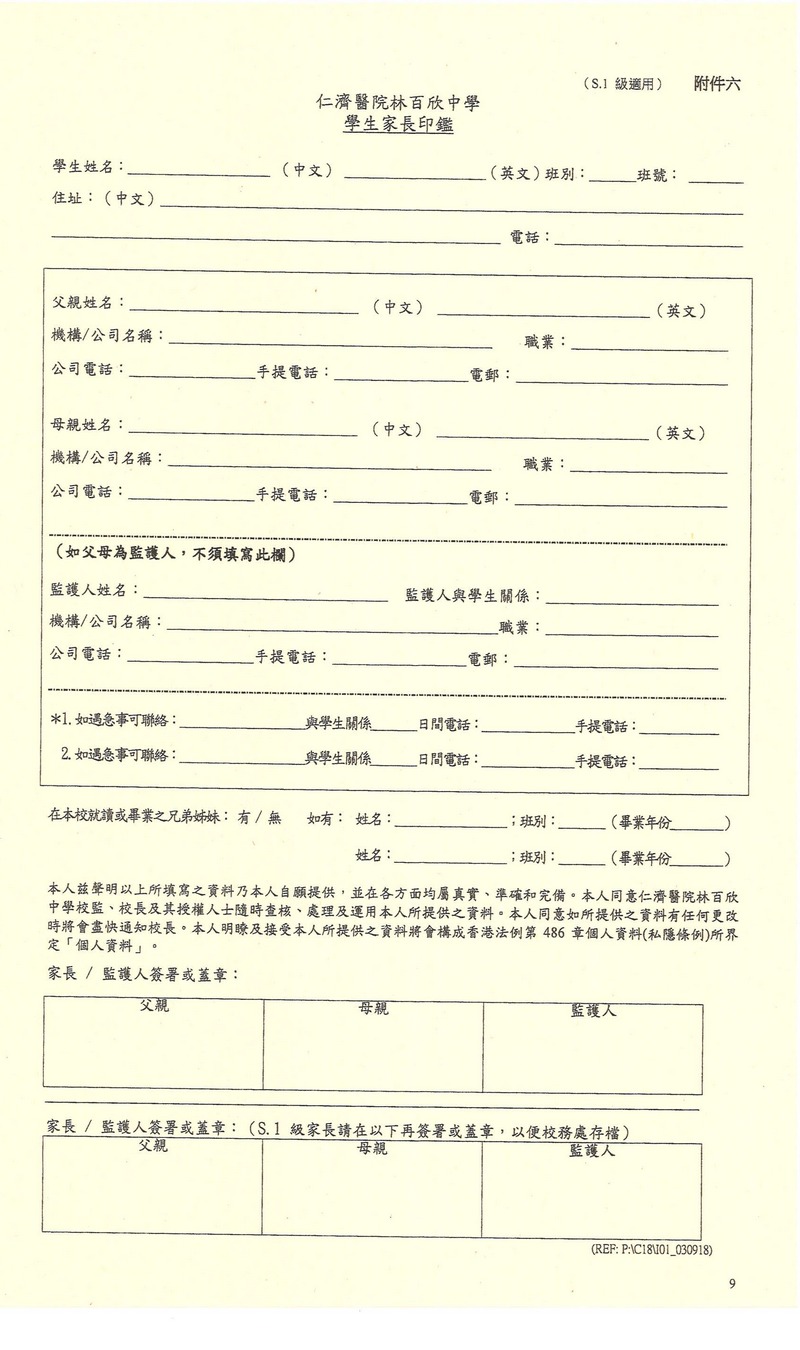 （S.1 級適用） 附件六
仁濟醫院林百欣中學
學生家長印鑑
學生姓名：＿＿＿＿（中文）＿＿＿＿（英文）班別：＿＿班號：＿＿
住址：（中文）＿＿＿＿
＿＿＿＿電話：＿＿＿＿
父親姓名：＿＿＿＿（中文）＿＿＿＿（英文）
機構/公司名稱：＿＿＿＿職業：＿＿＿＿
公司電話：＿＿＿＿手提電話：＿＿＿＿電郵：＿＿＿＿
母親姓名：＿＿＿＿（中文）＿＿＿＿（英文）
機構/公司名稱：＿＿＿＿職業：＿＿＿＿
公司電話：＿＿＿＿手提電話：＿＿＿＿電郵：＿＿＿＿
（如父母為監護人，不須填寫此欄）
監護人姓名：＿＿＿＿監護人與學生關係：＿＿＿＿
機構/公司名稱：＿＿＿＿職業：＿＿＿＿
公司電話：＿＿＿＿手提電話：＿＿＿＿電郵：＿＿＿＿
*1.如遇急事可聯絡：＿＿＿＿與學生關係＿＿日間電話：＿＿＿＿手提電話：＿＿＿＿
2.如遇急事可聯絡：＿＿＿＿與學生關係＿＿日間電話：＿＿＿＿手提電話：＿＿＿＿
在本校就讀或畢業之兄弟姊妹：有 / 無 如有：姓名：＿＿＿＿；班別：＿＿（畢業年份＿＿）
姓名：＿＿＿＿；班別：＿＿（畢業年份＿＿）
本人茲聲明以上所填寫之資料乃本人自願提供，並在各方面均屬真實、準確和完備。本人同意仁濟醫院林百欣
中學校監、校長及其授權人士隨時查核、處理及運用本人所提供之資料。本人同意如所提供之資料有任何更改
時將會盡快通知校長。本人明瞭及接受本人所提供之資料將會構成香港法例第 486 章個人資料(私隱條例)所界
定「個人資料」。
家長 / 監護人簽署或蓋章：
父親 母親 監護人
家長 / 監護人簽署或蓋章：（S.1 級家長請在以下再簽署或蓋章，以便校務處存檔）
父親 母親 監護人
(REF: P:\C18\I01_030918)
9